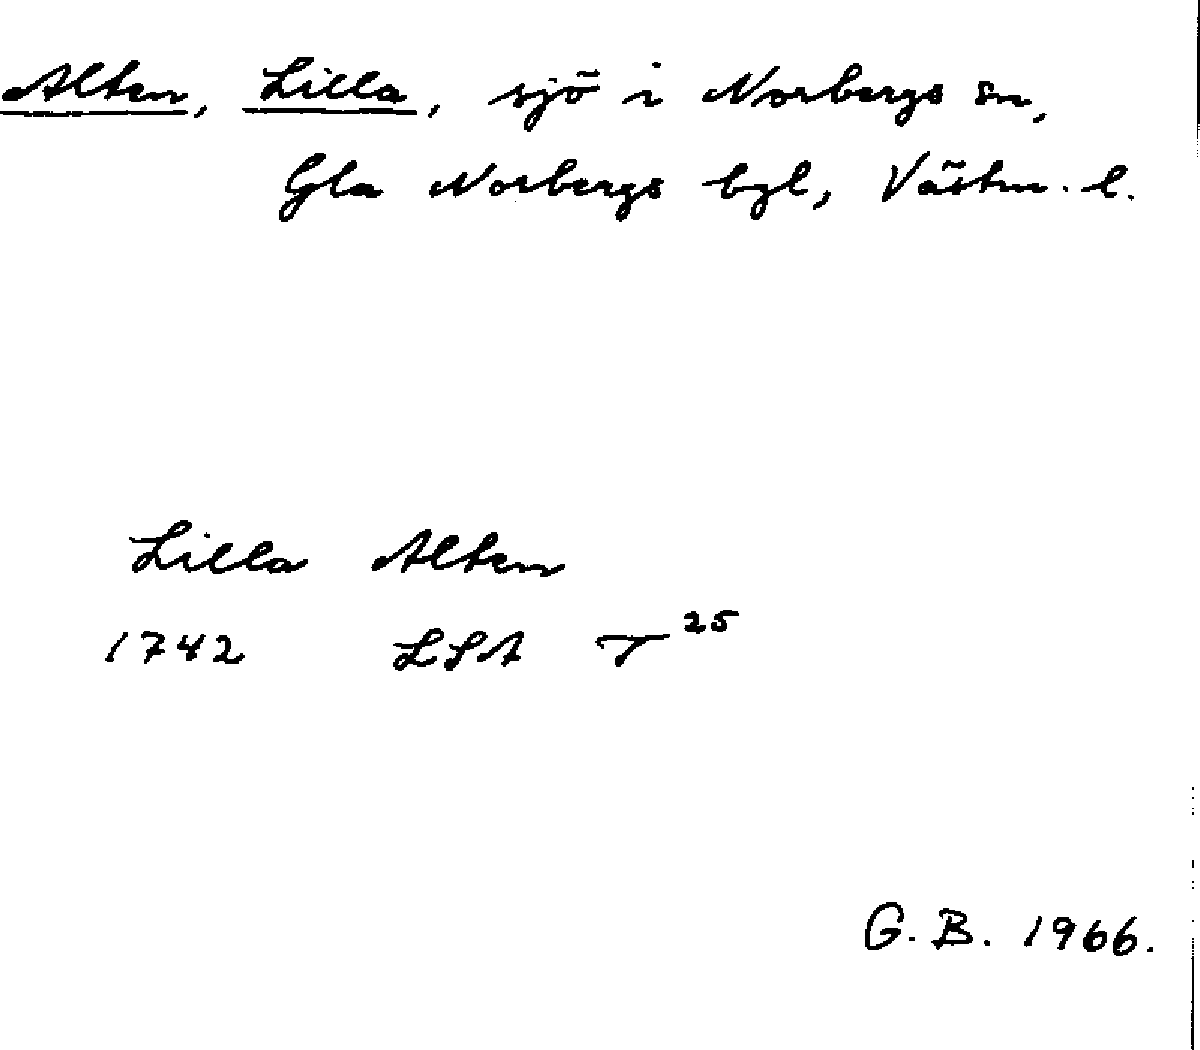 Alten, Lilla, sjö i Norbergs sn,
Gla Norbergs bgl, Västm. l.
Lilla Alten
1742 LSA T25
G. B. 1966.